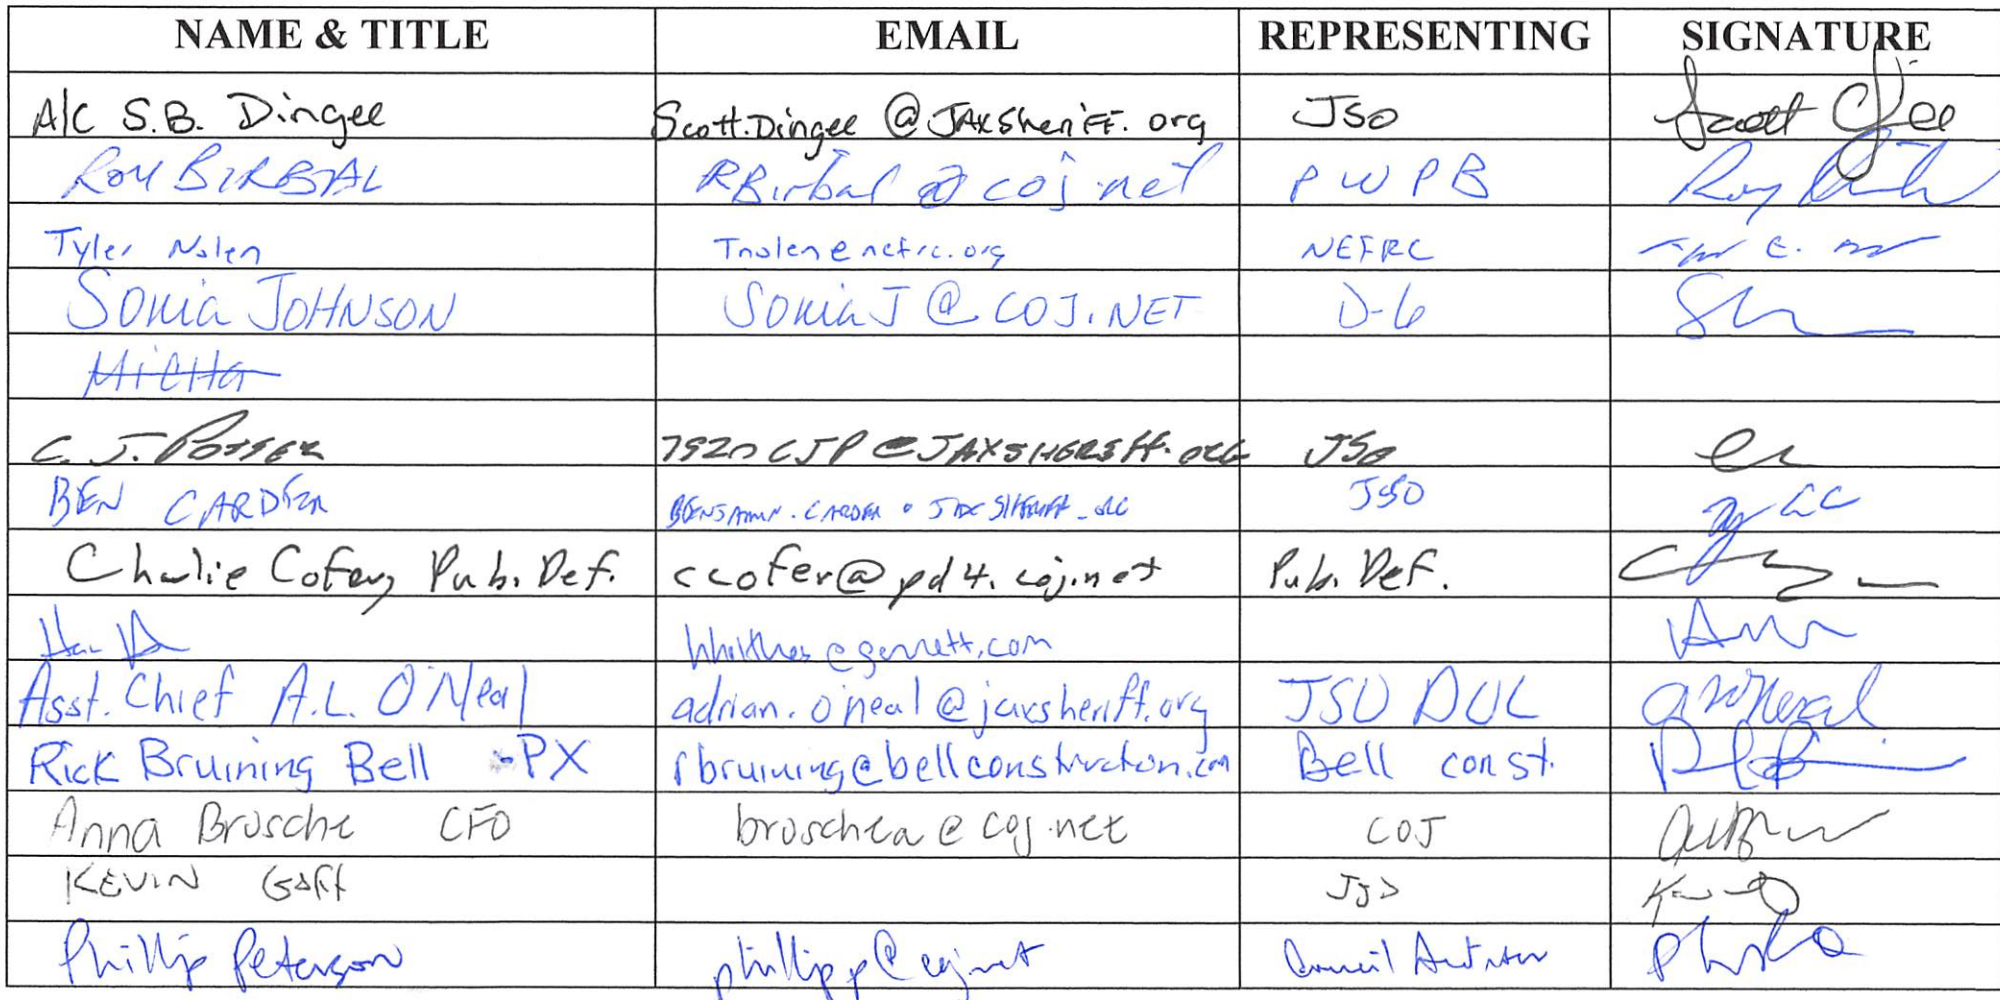 NAME & TITLE EMAIL REPRESENTING SIGNATURE
A/C S.B. Dingee Scott.Dingee@JAXSheriff.org JSO
ROY BIRBAL RBirbal@coj.net PWPB
Tyler Nolen Tnolen@nefrc.org NEFRC
Sonia JOHNSON SoniaJ@COJ.NET D-6
Micha
C. J. POTTER 7920CJP@JAXSHERIFF.ORG JSO
BEN CARDER BENJAMIN.CARDER@JAXSHERIFF.ORG JSO
Charlie Cofer, Pub. Def. ccofer@pd4.coj.net Pub. Def.
@gannett.com
Asst. Chief A.L. O'Neal adrian.o'neal@jaxsheriff.org JSO DOC
Rick Bruining Bell -PX rbruining@bellconstruction.com Bell const.
Anna Brosche CFO broschea@coj.net COJ
KEVIN JSO
Phillip Peterson phillipp@coj.net Council Auditor